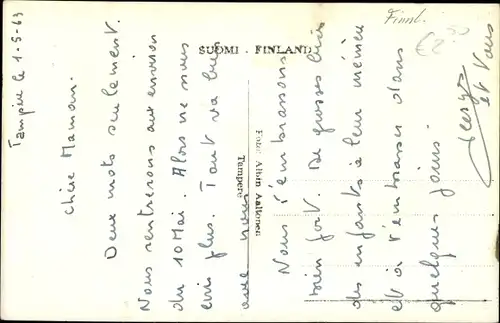 Tampere le 1-5-63
Chère Maman.
Deux mots seulement.
Nous rentrerons aux environ
du 10 Mai. Alors ne nous
écris plus. Tout va bien
avec nous
Nous t'embrassons
bien fort. De grosses bises
des enfants à leur mémée
et à t'embrasser dans
quelques jours.
et Vous
SUOMI - FINLAND
Foto: Albin Aaltonen
Tampere
Finnl.
€2.50